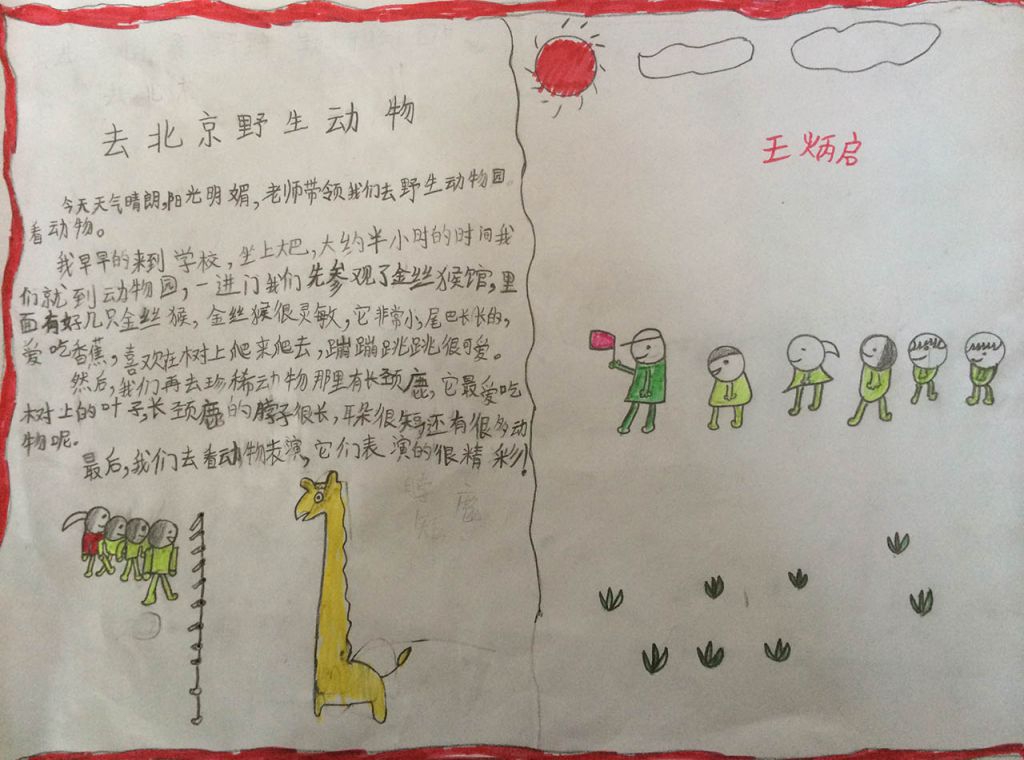 去北京野生动物
王炳启
今天天气晴朗,阳光明媚,老师带领我们去野生动物园。
看动物。
我早早的来到学校,坐上大巴,大约半小时的时间我
们就到动物园,一进门我们先参观了金丝猴馆,里
面有好几只金丝猴,金丝猴很灵敏,它非常小,尾巴长长的,
爱吃香蕉,喜欢在树上爬来爬去,蹦蹦跳跳很可爱。
然后,我们再去珍稀动物那里有长颈鹿,它最爱吃
树上的叶子,长颈鹿的脖子很长,耳朵很短,还有很多动
物呢.
最后,我们去看动物表演,它们表演的很精彩!